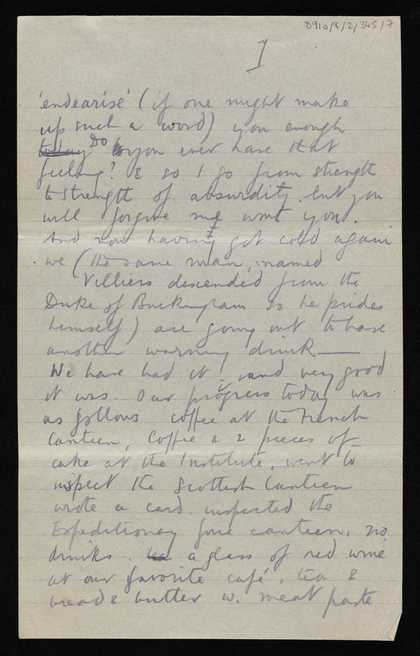 D910/8/2/345/7
7
'endearise' (if one might make
up such a word) you enough
today Do you ever have that
feeling? & so I go from strength
to strength of absurdity but you
will forgive me wont you.
And now having got cold again
we (the same man, named
Villiers descended from the
Duke of Buckingham so he prides
himself) are going out to have
another warming drink —
We have had it, and very good
it was. Our progress today was
as follows coffee at the French
Canteen, Coffee & 2 pieces of
cake at the Institute, went to
inspect the Scottish Canteen
wrote a card inspected the
Expeditionary force canteen, no
drinks. a glass of red wine
at our favorite café, tea &
bread & butter w. meat paste